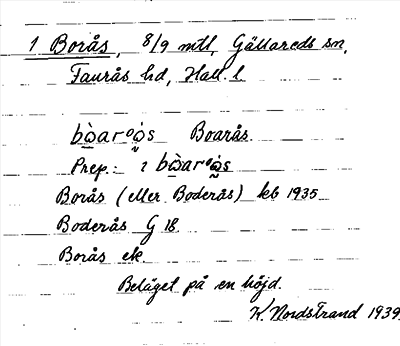 1 Borås, 8/9 mtl, Gällareds sn,
Faurås hd, Hall. l.
Boarås.
Prep.: i
Borås (eller Boderås) kb 1935
Boderås G 18.
Borås ek.
Beläget på en höjd.
K. Nordstrand 1939.